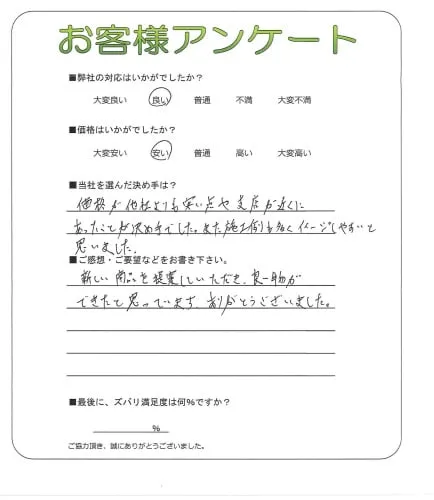 お客様アンケート
■弊社の対応はいかがでしたか？
大変良い 良い 普通 不満 大変不満
■価格はいかがでしたか？
大変安い 安い 普通 高い 大変高い
■当社を選んだ決め手は？
価格が他社よりも安い点や支店が近くに
あったことが決め手でした。また施工例も多くイメージしやすいと
思いました。
■ご感想・ご要望などをお書き下さい。
新しい商品を提案していただき、良い物が
できたと思っています。ありがとうございました。
■最後に、ズバリ満足度は何%ですか？
%
ご協力頂き、誠にありがとうございました。